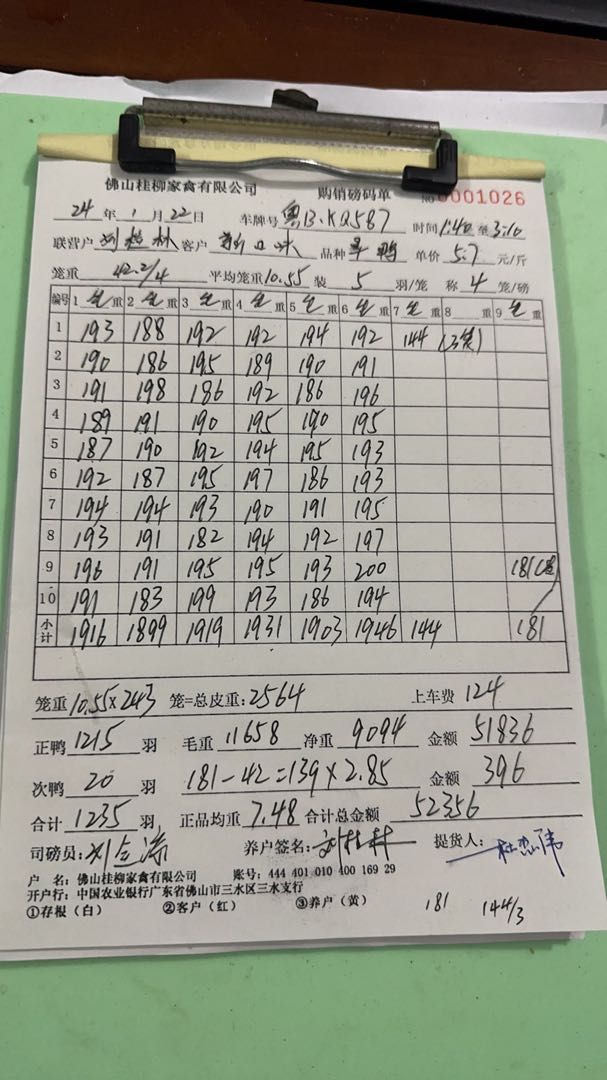 佛山桂柳家禽有限公司 购销磅码单 № 0001026
24 年 1 月 22 日 车牌号 粤B·KQ587 时间 1:40 至 3:10
联营户 刘桂林 客户 品种 旱鸭 单价 5.7 元/斤
笼重 42.2/4 平均笼重 10.55 装 5 羽/笼 称 4 笼/磅
编号 1 毛 重 2 毛 重 3 毛 重 4 毛 重 5 毛 重 6 毛 重 7 毛 重 8 重 9 毛 重
1 193 188 192 192 194 192 144 (3笼)
2 190 186 195 189 190 191
3 191 198 186 192 186 196
4 189 191 190 195 190 195
5 187 190 192 194 195 193
6 192 187 195 197 186 193
7 194 194 193 190 191 195
8 193 191 182 194 192 197
9 196 191 195 195 193 200 181
10 191 183 199 193 186 194
小计 1916 1899 1919 1931 1903 1946 144 181
笼重 10.55×243 笼=总皮重: 2564 上车费 124
正鸭 1215 羽 毛重 11658 净重 9094 金额 51836
次鸭 20 羽 181-42=139×2.85 金额 396
合计 1235 羽 正品均重 7.48 合计总金额 52356
司磅员: 养户签名: 刘桂林 提货人:
户 名: 佛山桂柳家禽有限公司 账号: 444 401 010 400 169 29
开户行: 中国农业银行广东省佛山市三水区三水支行
①存根(白) ②客户(红) ③养户(黄) 181 144/3